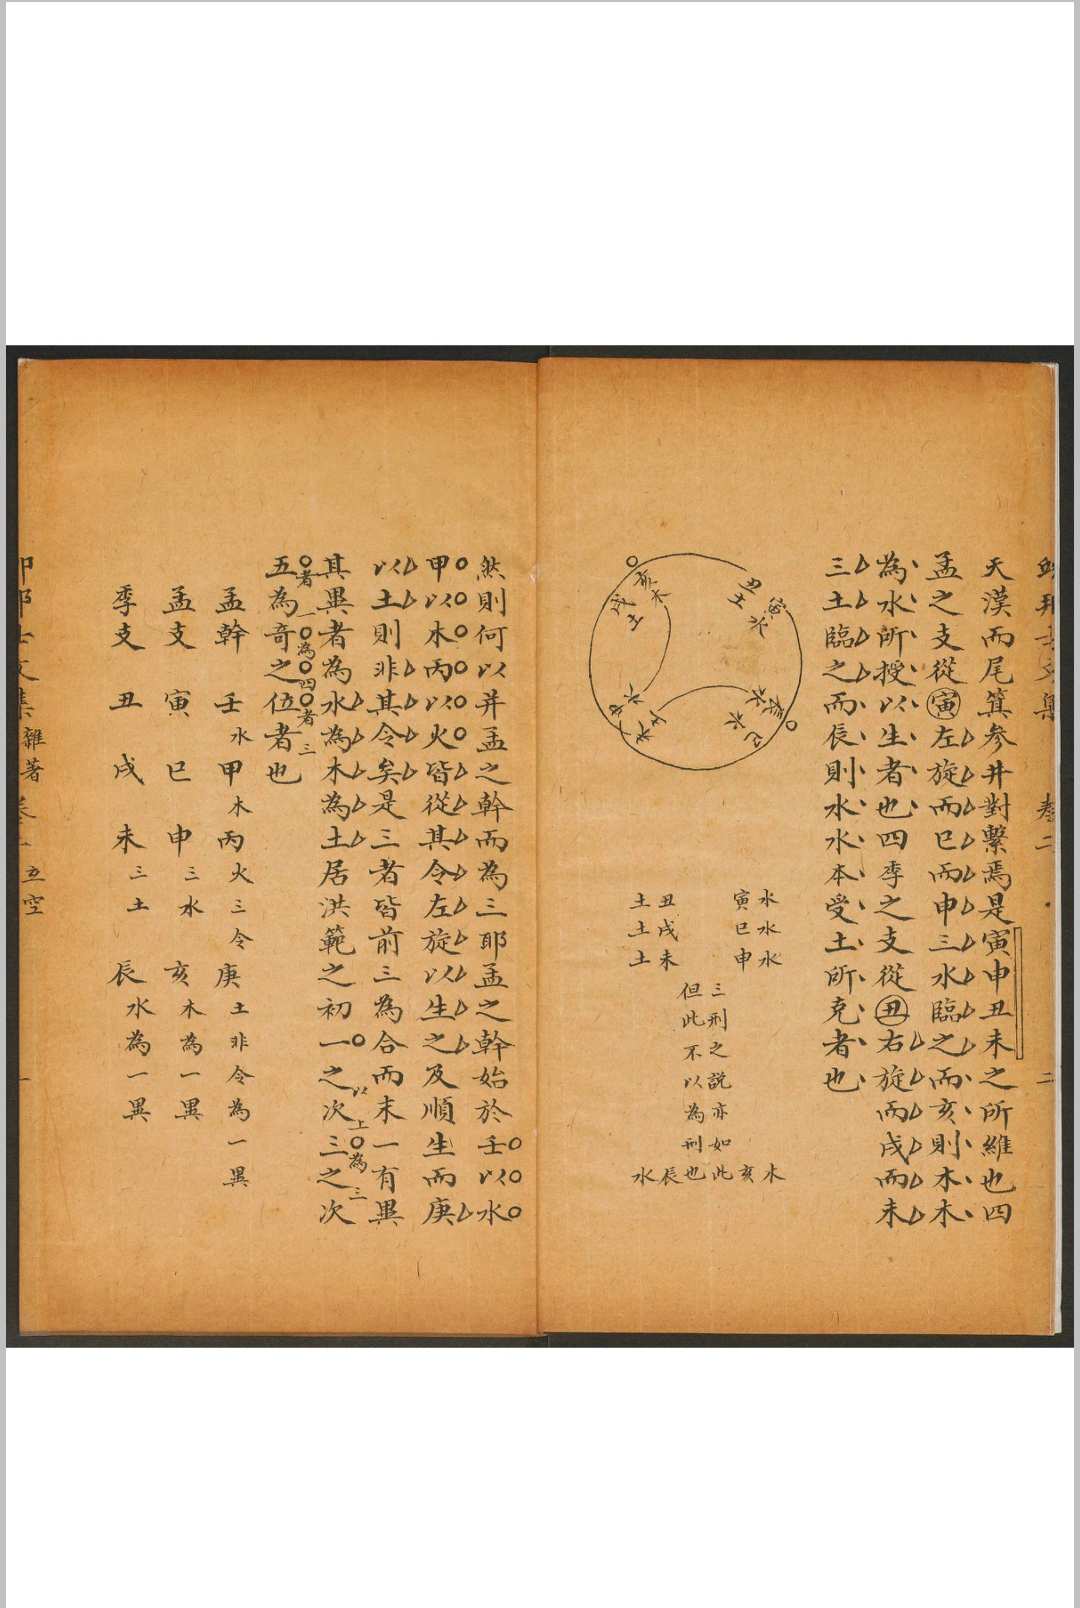 天漢而尾箕参井對繫焉是寅申丑未之所維也四
孟之支從寅左旋而巳而申三水臨之而亥則木木
為水所授以生者也四季之支從丑右旋而戌而未
三土臨之而辰則水水本受土所克者也
水水水
寅巳申
木亥
三刑之說亦如此
但此不以為刑也
辰水
丑戌未
土土土
丑土
寅水
亥木
戌土
然則何以并孟之幹而為三耶孟之幹始於壬以水
甲以木丙以火皆從其令左旋以生之及順生而庚
以土則非其令矣是三者皆前三為合而末一有異
其異者為水為木為土居洪範之初一之次三之次
以上〇為三
五為奇之位者也
〇者一〇為〇四〇者三
孟幹 壬水甲木丙火三令庚土非令為一異
孟支 寅巳申三水亥木為一異
季支 丑戌未三土辰水為一異
雜著
五空